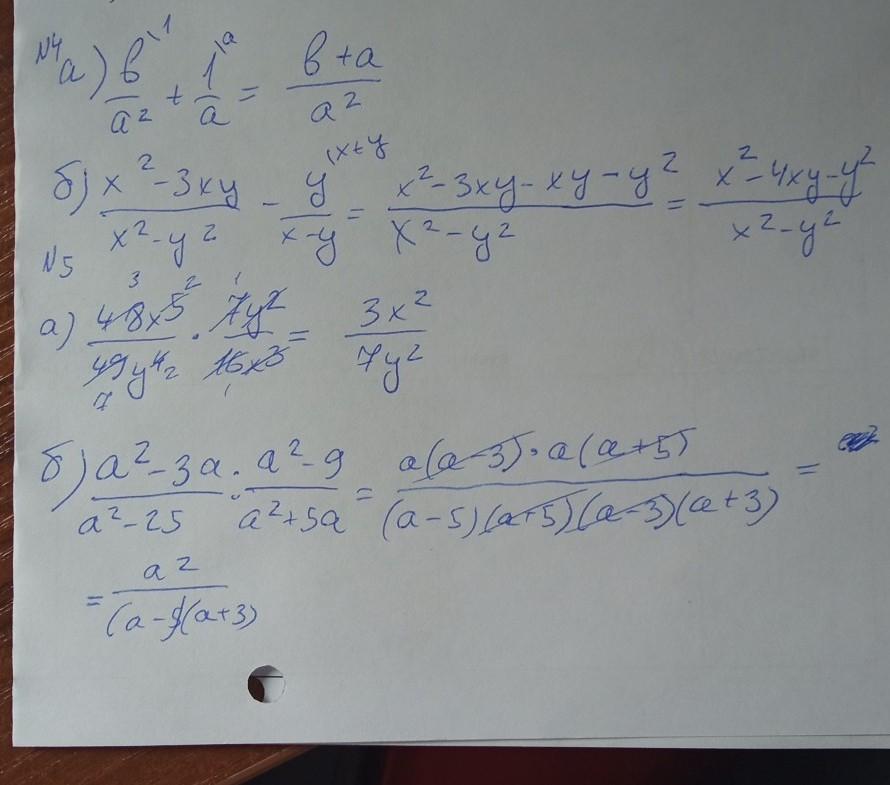 №4
а) в^\1/a² + 1^\a/a = (в+a)/a²
б) (x²-3xy)/(x²-y²) - y^\x+y/(x-y) = (x²-3xy-xy-y²)/(x²-y²) = (x²-4xy-y²)/(x²-y²)
№5
а) 48x⁵/49y⁴ · 7y²/16x³ = 3x²/7y²
б) (a²-3a)/(a²-25) : (a²-9)/(a²+5a) = (a(a-3)·a(a+5))/((a-5)(a+5)(a-3)(a+3)) =
= a²/((a-5)(a+3))